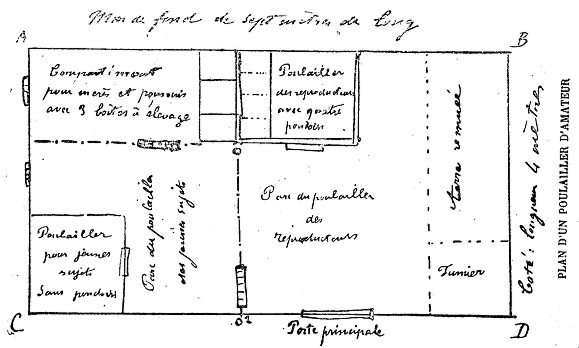 Mur de fond de sept mètres de long
A
B
Compartiment
pour mères et poussins
avec 3 boîtes à élevage
Poulailler
des reproducteurs
avec quatre
pondoirs
terre remuée
Coté : longueur 4 mètres
PLAN D'UN POULAILLER D'AMATEUR
Parc du poulailler
des jeunes sujets
Parc du poulailler
des
reproducteurs
Poulailler
pour jeunes
sujets
Sans pondoirs
Fumier
C
Porte principale
D